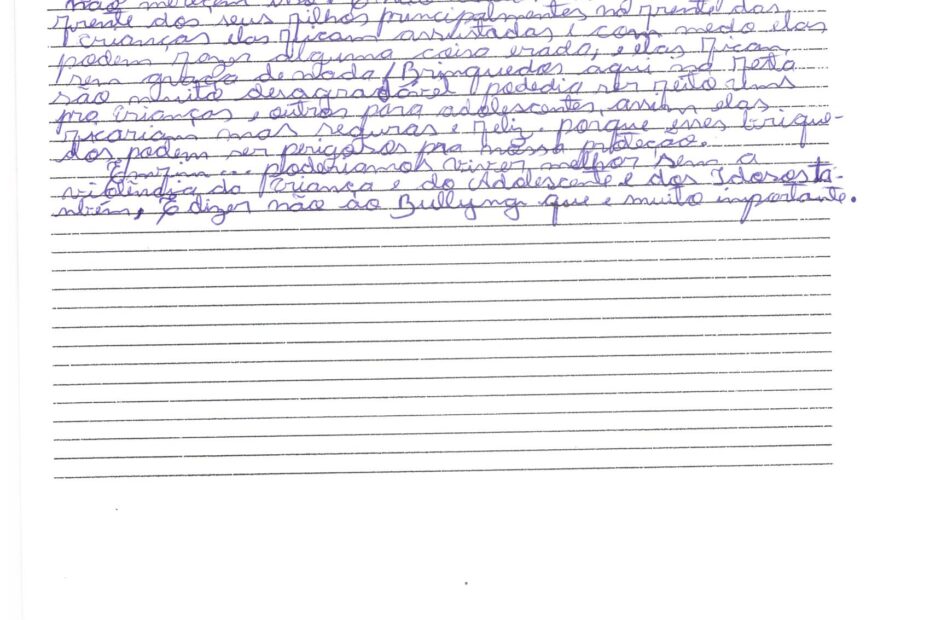 não merecem isso. O não
frente dos seus filhos principalmentes na frente das
crianças elas ficam assustadas e com medo elas
podem fazer alguma coisa erado, e elas ficam
sem graça de nada/Brinquedos aqui na
são muito desagradável podedia ser feito uns
pra crianças, e outros para adolescentes, assim elas
ficariam mas seguras e feliz. porque esses brique-
dos podem ser perigosos pra nossa proteção.
Enfim... poderiamos viver melhor sem a
violência da Criança e do Adolescente e dos Idosos ta-
mbém, E dizer não ao Bullyng que e muito importante.